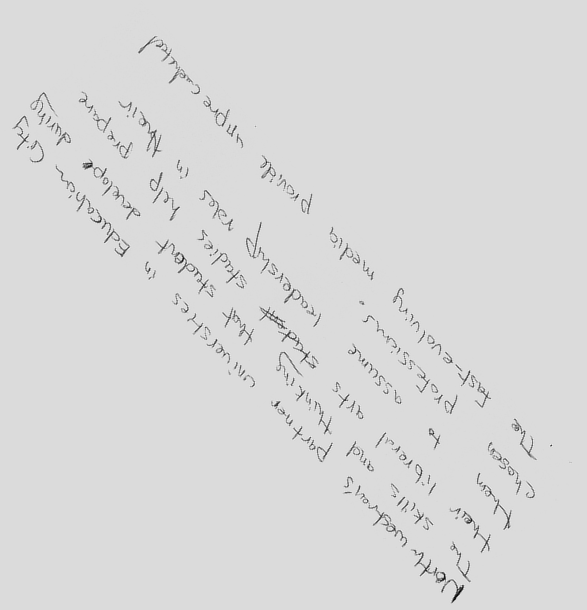 Northwestren's partner universities in Education City
The skills and thinking that student develope during
their libreral arts studies help prepare
them to assume leadership roles in their
chosen professions.
The fast-evolving media provide